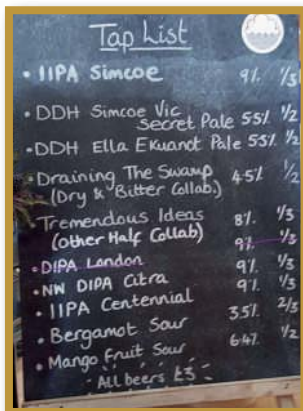 Tap List
• IIPA Simcoe 9% 1/3
• DDH Simcoe Vic
Secret Pale 5.5% 1/2
• DDH Ella Ekuanot Pale 5.5% 1/2
• Draining The Swamp 4.5% 1/2
(Dry & Bitter Collab.)
• Tremendous Ideas 8% 1/3
(Other Half Collab)
• DIPA London 9% 1/3
• NW DIPA Citra 9% 1/3
• IIPA Centennial 9% 1/3
• Bergamot Sour 3.5% 2/3
• Mango Fruit Sour 6.4% 1/2
All beers £3